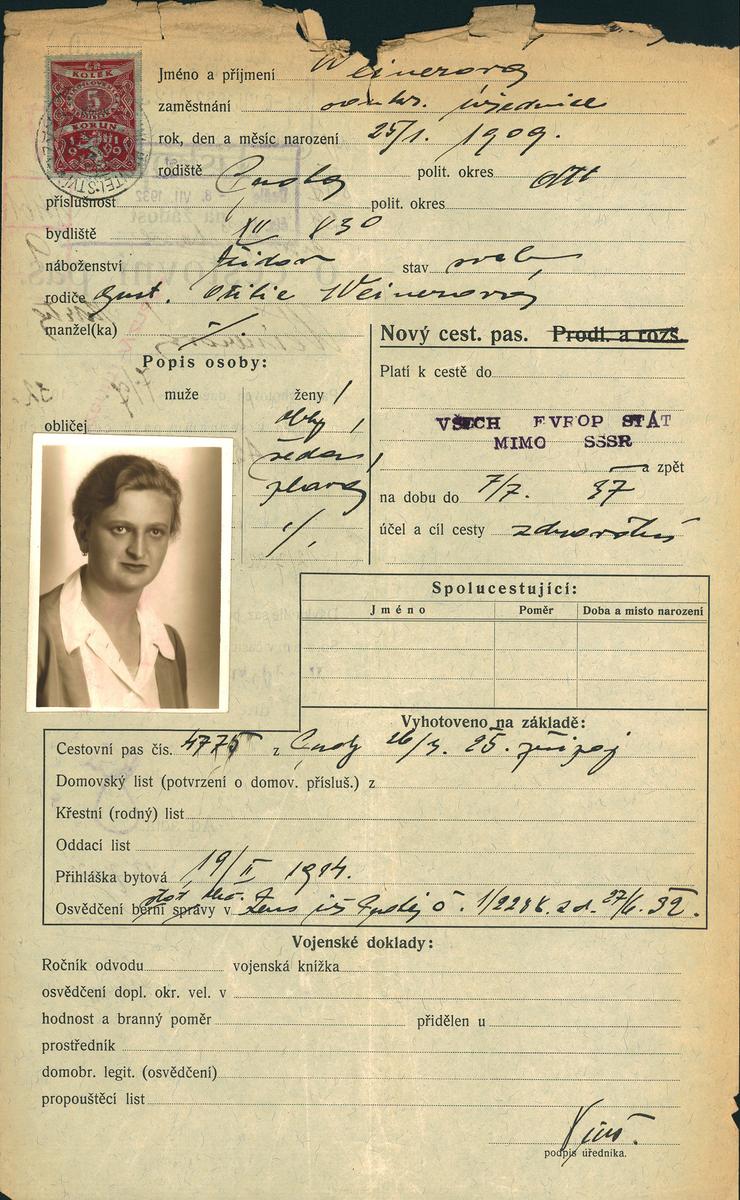 KOLEK
5
KORUN
Jméno a příjmení Weinerová
zaměstnání soukr. úřednice
rok, den a měsíc narození 25/1. 1909.
rodiště polit. okres dtt
příslušnost polit. okres
bydliště XII 830
náboženství židov stav svob
rodiče Gust. Otilie Weinerová
manžel(ka)
Nový cest. pas. Prodl. a rozš.
Popis osoby:
Platí k cestě do
muže ženy
obličej oblý
VŠECH EVROP STÁT
MIMO SSSR
šedé
a zpět
plavé
na dobu do 7/7. 37
účel a cíl cesty zdravotní
Spolucestující:
Jméno Poměr Doba a místo narození
Vyhotoveno na základě:
Cestovní pas čís. 4775 z 25. připoj
Domovský list (potvrzení o domov. přísluš.) z
Křestní (rodný) list
Oddací list
Přihláška bytová 19/II 1914.
Osvědčení berní správy v č. 1/2288 z d. 27/6. 32.
Vojenské doklady:
Ročník odvodu vojenská knížka
osvědčení dopl. okr. vel. v
hodnost a branný poměr přidělen u
prostředník
domobr. legit. (osvědčení)
propouštěcí list
podpis úředníka.